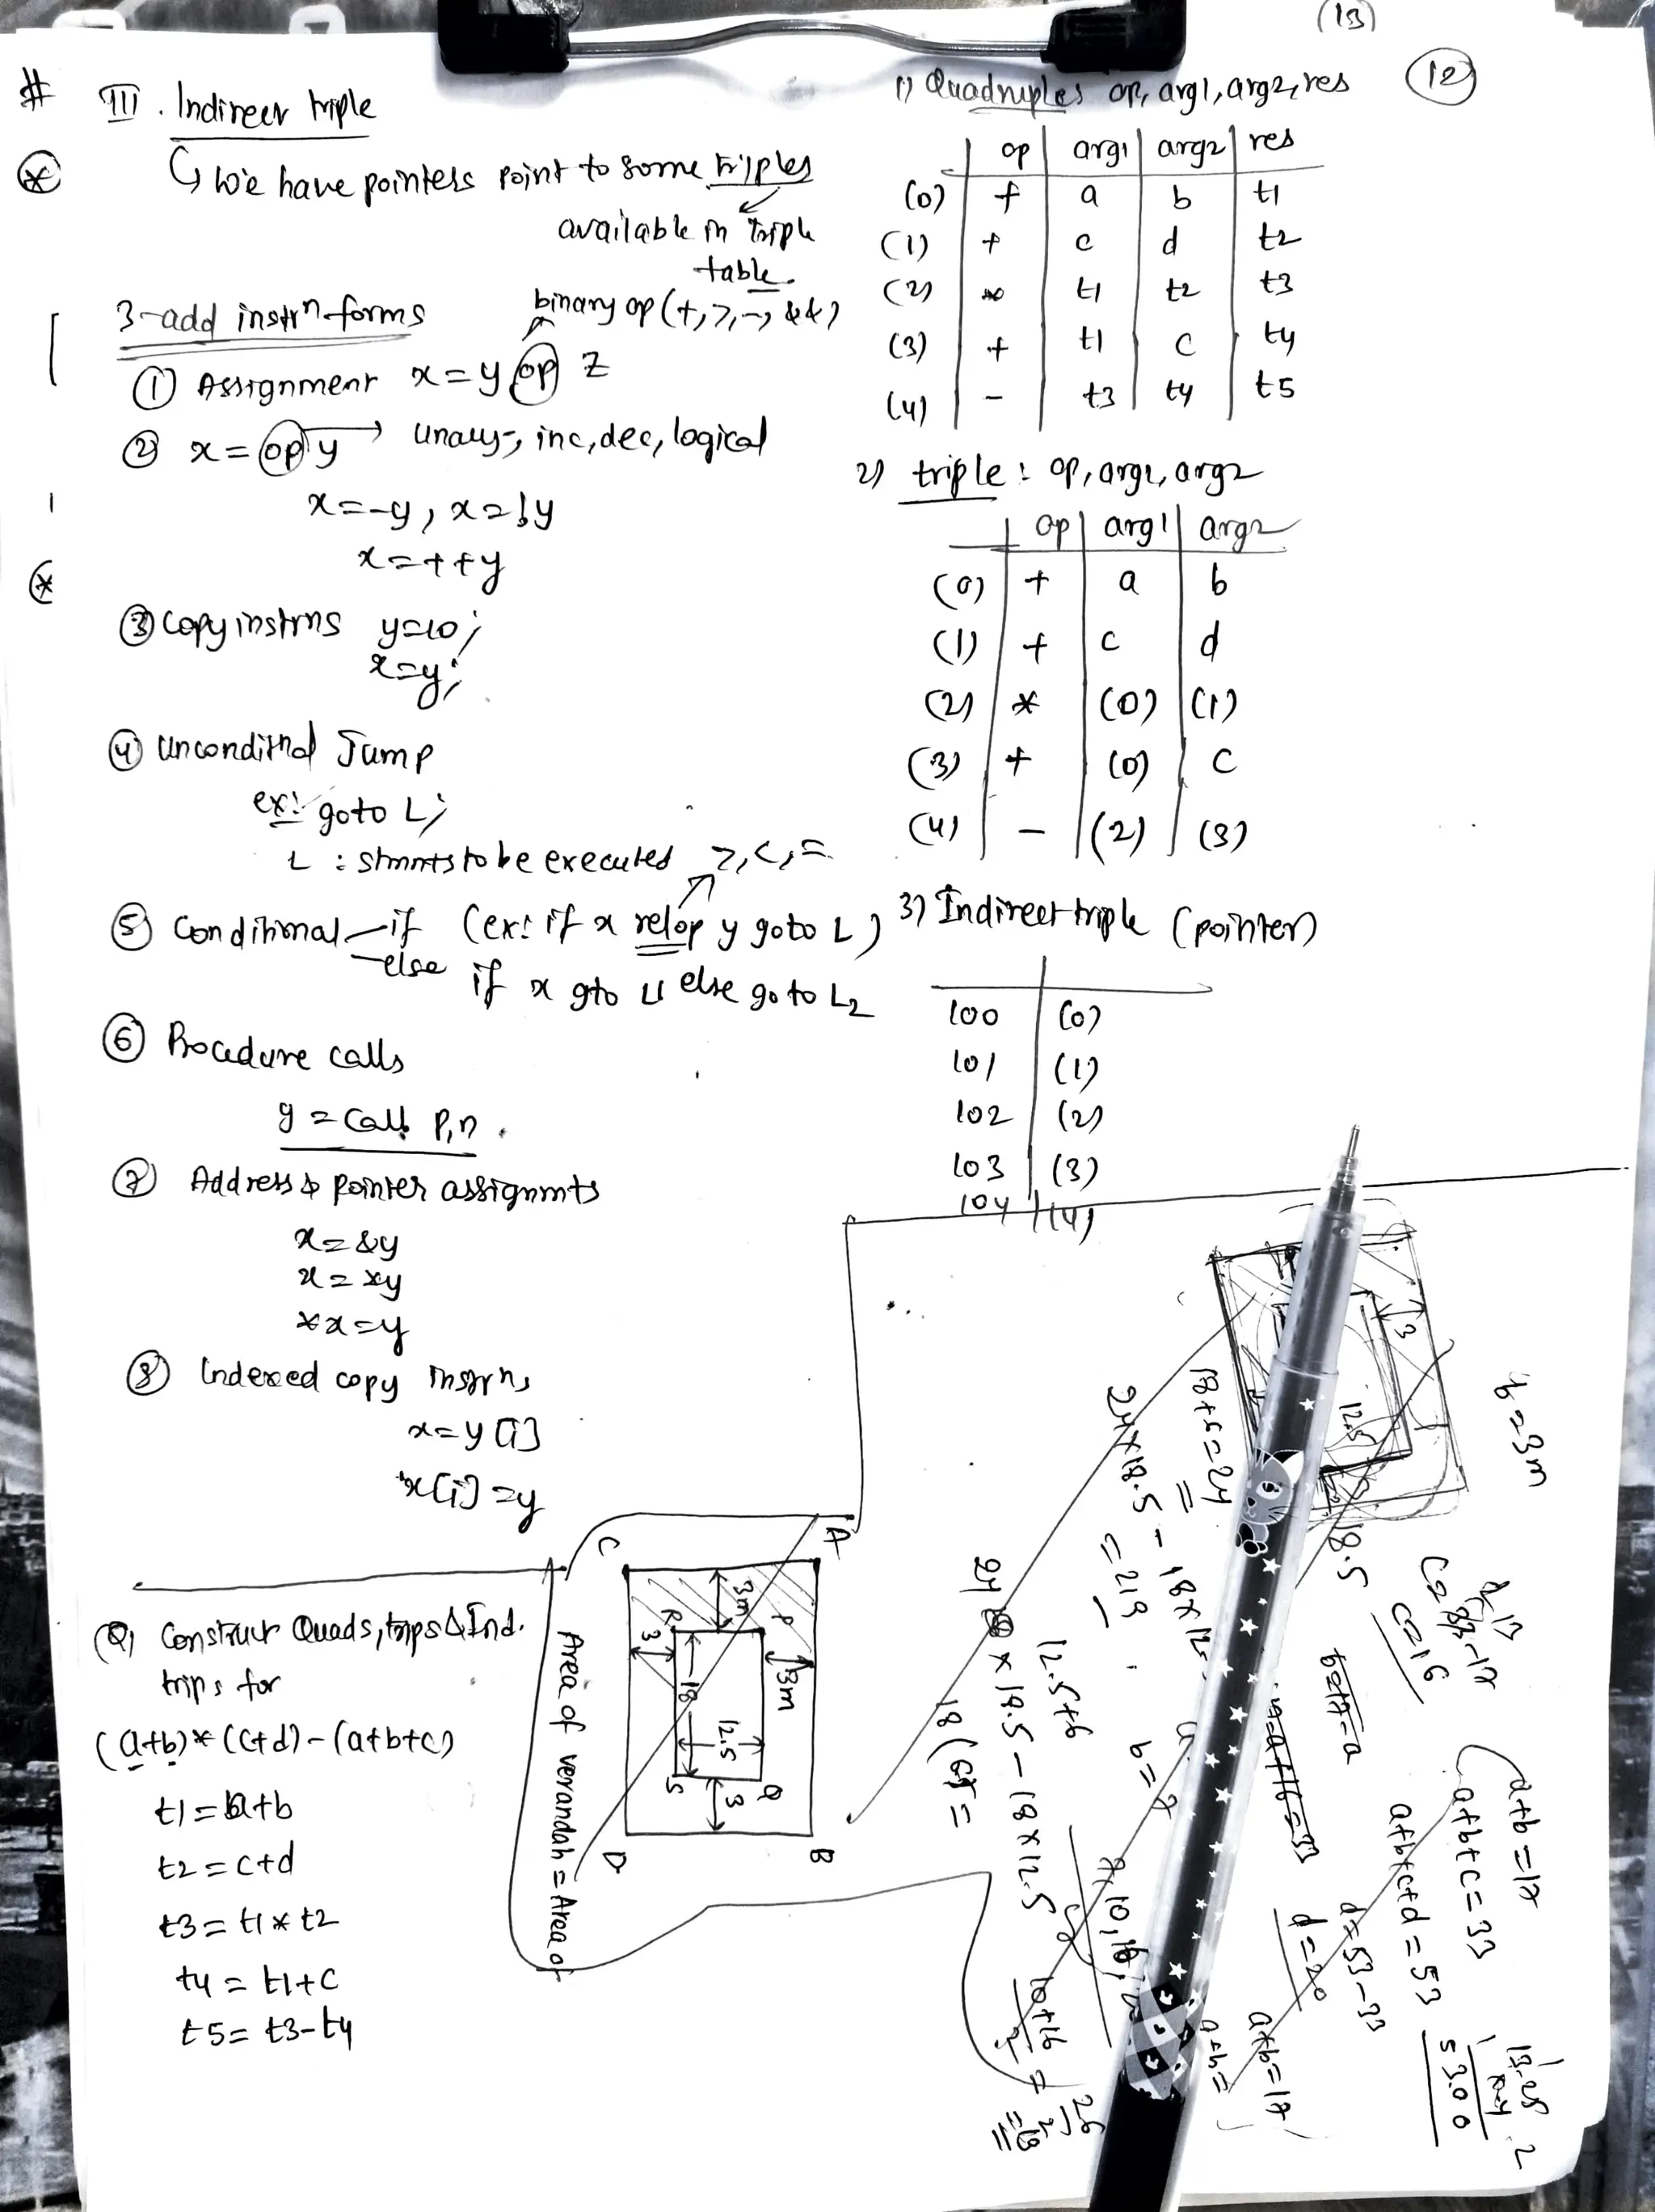 (13)
(12)
#
III. Indirect triple
↳ We have pointers point to some triples
available in triple
table.
3-add instrn forms
binary op (+, >, -, &&)
① Assignment x = y op z
② x = op y → unary-, inc, dec, logical
x = -y, x = !y
x = ++y
③ Copy instrns y=10;
x=y;
④ Uncondithal Jump
ex: goto L;
L : stmnts to be executed >, <, =
⑤ Conditional — if (ex: if x relop y goto L)
— else if x gto L1 else go to L2
⑥ Procedure calls
y = Call P,n.
⑦ Address & pointer assignmts
x = &y
x = *y
*x = y
⑧ Indexed copy instrns
x = y[i]
x[i] = y
(Q) Construct Quads, trips & Ind.
trips for
(a+b)*(c+d)-(a+b+c)
t1 = a+b
t2 = c+d
t3 = t1 * t2
t4 = t1+c
t5 = t3-t4
1) Quadruples op, arg1, arg2, res
op arg1 arg2 res
(0) + a b t1
(1) + c d t2
(2) * t1 t2 t3
(3) + t1 c t4
(4) - t3 t4 t5
2) triple : op, arg1, arg2
op arg1 arg2
(0) + a b
(1) + c d
(2) * (0) (1)
(3) + (0) c
(4) - (2) (3)
3) Indirect triple (pointer)
100 (0)
101 (1)
102 (2)
103 (3)
104 (4)
C A
3m
R P
3 3m
18
12.5
S Q
3
D B
Area of verandah = Area of
3
12.5
18.5
18+6=24
24×18.5 - 18×12.
= 219
12.5+6
24 × 18.5 - 18×12.5
18(6
= 3m
c=16
b=17-a
a+b=17
a+b+c=33
a+b+c+d=53
d=53-33
d=20
a+b=17
a+b=
10+16
2
= 26
2
=13
13.25
53.00